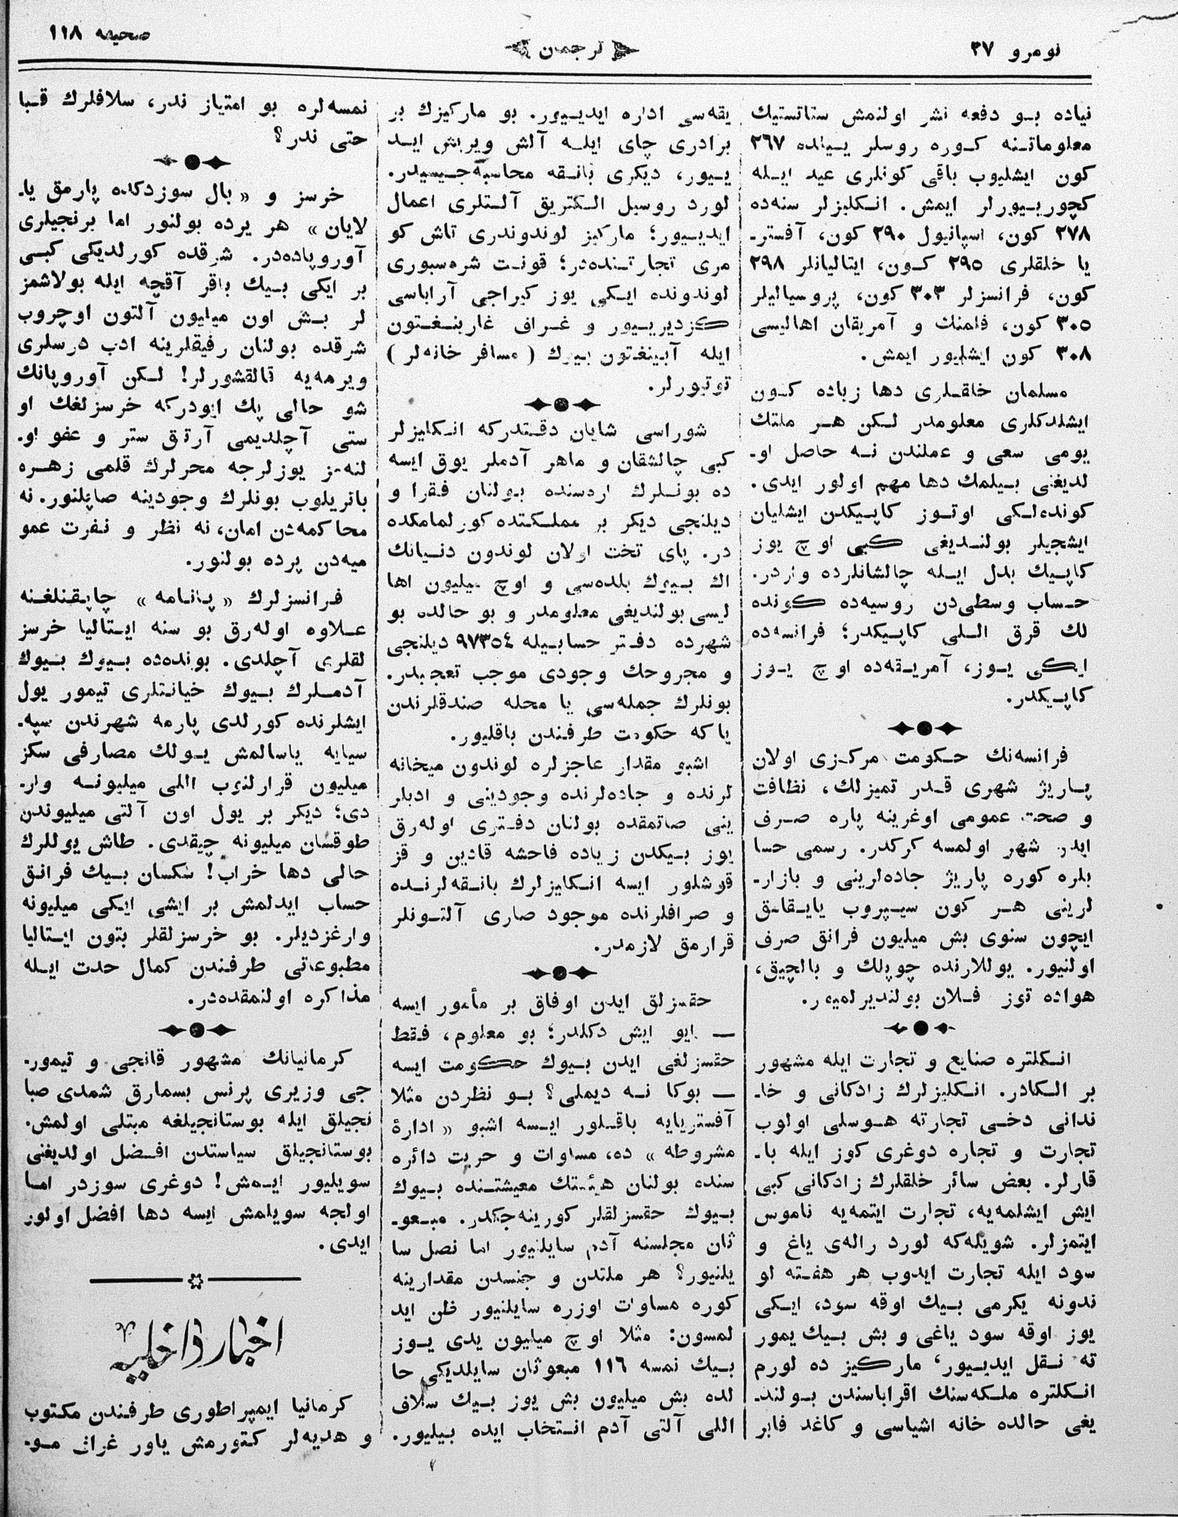 نومرو ٢٧
ترجمان
صحیفه ١١٨
نیاده بو دفعه نشر اولنمش ستاتستیك
معلوماتنه كوره روسلر ییلده ٢٦٧
كون ایشلیوب باقی كونلری عید ایله
كچوریبورلر ایمش. انكلیزلر سنه‌ده
٢٧٨ كون، اسپانیول ٢٩٠ كون، آفستر-
یا خلقلری ٢٩٥ كون، ایتالیانلر ٢٩٨
كون، فرانسزلر ٣٠٣ كون، پروسیالیلر
٣٠٥ كون، فلمنك و آمریقان اهالیسی
٣٠٨ كون ایشلیور ایمش.
مسلمان خلقلری دها زیاده كون
ایشلدكلری معلومدر لكن هر ملتك
یومی سعی و عملندن نه حاصل او-
لدیغنی بیلمك دها مهم اولور ایدی.
كونده‌لكی اوتوز كاپیكدن ایشلیان
ایشجیلر بولندیغی كبی اوچ یوز
كاپیك بدل ایله چالشانلرده واردر.
حساب وسطی‌دن روسیه‌ده كونده
لك قرق اللی كاپیكدر؛ فرانسه‌ده
ایكی یوز، آمریقه‌ده اوچ یوز
كاپیكدر.
فرانسه‌نك حكومت مركزی اولان
پاریژ شهری قدر تمیزلك، نظافت
و صحت عمومی اوغرینه پاره صرف
ایدر شهر اولمسه كركدر. رسمی حسا
بلره كوره پاریژ جاده‌لرینی و بازار-
لرینی هر كون سیپروب یایقامق
ایچون سنوی بش میلیون فرانق صرف
اولنیور. یوللارنده چوپلك و بالچیق،
هواده توز فلان بولندیرلمیور.
انكلتره صنایع و تجارت ایله مشهور
بر الكادر. انكلیزلرك زادكانی و خا-
ندانی دخی تجارته هوسلی اولوب
تجارت و تجاره دوغری كوز ایله با-
قارلر. بعض سائر خلقلرك زادكانی كبی
ایش ایشلمه‌یه، تجارت ایتمه‌یه ناموس
ایتمزلر. شویله‌كه لورد راله‌ی یاغ و
سود ایله تجارت ایدوب هر هفته لو
ندونه یكرمی بیك اوقه سود، ایكی
یوز اوقه سود یاغی و بش بیك یمور
ته نقل ایدییور، ماركیز ده لورم
انكلتره ملكه‌سنك اقراباسندن بولند-
یغی حالده خانه اشیاسی و كاغد فابر
یقه‌سی اداره ایدییور. بو ماركیزك بر
برادری چای ایله آلش ویریش اید
ییور، دیكری بانقه محاسبه‌جیسیدر.
لورد روسیل الكتریق آلتلری اعمال
ایدییور؛ ماركیز لوندوندری تاش كو
مری تجارتنده‌در؛ قونت شره‌سبوری
لوندونده ایكی یوز كیراجی آراباسی
كزدیرییور و غراف غاربنغتون
ایله آبینغتون بیوك (مسافر خانه‌لر)
توتیورلر.
شوراسی شایان دقتدركه انكلیزلر
كبی چالشقان و ماهر آدملر یوق ایسه
ده بونلرك اره‌سنده بولنان فقرا و
دیلنجی دیكر بر مملكتده كورلمامكده
در. پای تخت اولان لوندون دنیانك
اك بیوك بلده‌سی و اوچ میلیون اها
لیسی بولندیغی معلومدر و بو حالده بو
شهرده دفتر حسابیله ٩٧٣٥٤ دیلنجی
و مجروحك وجودی موجب تعجبدر.
بونلرك جمله‌سی یا محله صندقلرندن
یا كه حكومت طرفندن باقلیور.
اشبو مقدار عاجزلره لوندون میخانه
لرنده و جاده‌لرنده وجودینی و ادبلر
ینی صاتمقده بولنان دفتری اوله‌رق
یوز بیكدن زیاده فاحشه قادین و قز
قوشلور ایسه انكلیزلرك بانقه‌لرنده
و صرافلرنده موجود صاری آلتونلر
قرارمق لازمدر.
حقسزلق ایدن اوفاق بر مأمور ایسه
— ایو ایش دكلدر؛ بو معلوم، فقط
حقسزلغی ایدن بیوك حكومت ایسه
— بوكا نه دیملی؟ بو نظردن مثلا
آفستریایه باقلور ایسه اشبو «ادارهٔ
مشروطه» ده، مساوات و حریت دائره
سنده بولنان هیئتك معیشتنده بیوك
بیوك حقسزلقلر كورینه‌جكدر. مبعو-
ثان مجلسنه آدم سایلنیور اما نصل سا
یلنیور؟ هر ملتدن و جنسدن مقدارینه
كوره مساوات اوزره سایلنیور ظن اید
لمسون: مثلا اوچ میلیون یدی یوز
بیك نمسه ١١٦ مبعوثان سایلدیكی حا
لده بش میلیون بش یوز بیك سلاف
اللی آلتی آدم انتخاب ایده بیلیور.
نمسه‌لره بو امتیاز ندر، سلافلرك قبا
حتی ندر؟
خرسز و «بال سوزدكده پارمق یا-
لایان» هر یرده بولنور اما برنجیلری
آوروپاده‌در. شرقده كورلدیكی كبی
بر ایكی بیك باقر آقچه ایله بولاشمز
لر بش اون میلیون آلتون اوچروب
شرقده بولنان رفیقلرینه ادب درسلری
ویرمه‌یه قالقشورلر! لكن آوروپانك
شو حالی پك ایودركه خرسزلغك او
ستی آچلدیمی آرتق ستر و عفو او-
لنه‌مز یوزلرجه محرلرك قلمی زهره
باتریلوب بونلرك وجودینه صاپلنور. نه
محاكمه‌دن امان، نه نظر و نفرت عمو
میه‌دن پرده بولنور.
فرانسزلرك «پانامه» چاپقنلغنه
علاوه اوله‌رق بو سنه ایتالیا خرسز
لقلری آچلدی. بونده‌ده بیوك بیوك
آدملرك بیوك خیانتلری تیمور یول
ایشلرنده كورلدی پارمه شهرندن سپه-
سیایه یاسالمش یولك مصارفی سكز
میلیون قرارلنوب اللی میلیونه وار-
دی؛ دیكر بر یول اون آلتی میلیوندن
طوقسان میلیونه چیقدی. طاش یوللرك
حالی دها خراب! سكسان بیك فرانق
حساب ایدلمش بر ایشی ایكی میلیونه
وارغزدیلر. بو خرسزلقلر بتون ایتالیا
مطبوعاتی طرفندن كمال حدت ایله
مذاكره اولنمقده‌در.
كرمانیانك مشهور قانجی و تیمور-
جی وزیری پرنس بسمارق شمدی صبا
نجیلق ایله بوستانجیلغه مبتلی اولمش.
بوستانجیلق سیاستدن افضل اولدیغنی
سویلیور ایمش! دوغری سوزدر اما
اولجه سویلمش ایسه دها افضل اولور
ایدی.
اخبار داخلیه
كرمانیا ایمپراطوری طرفندن مكتوب
و هدیه‌لر كتورمش یاور غراف مو-